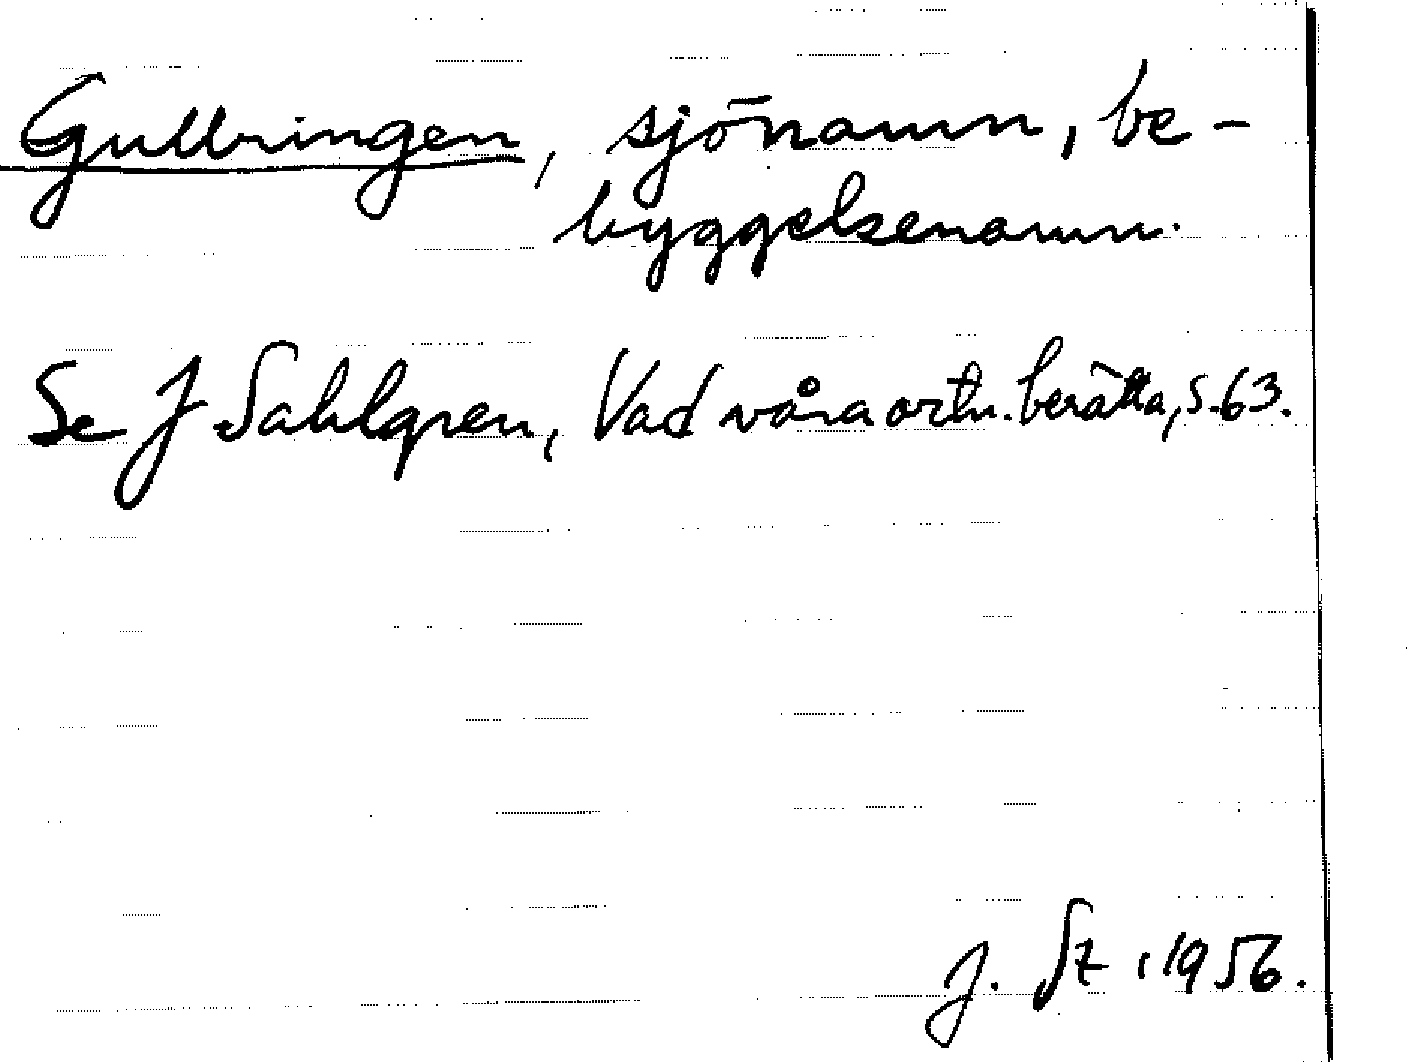 Gullringen, sjönamn, be-
byggelsenamn.
Se J Sahlgren, Vad våra ortn. berätta, s. 63.
J. St 1956.